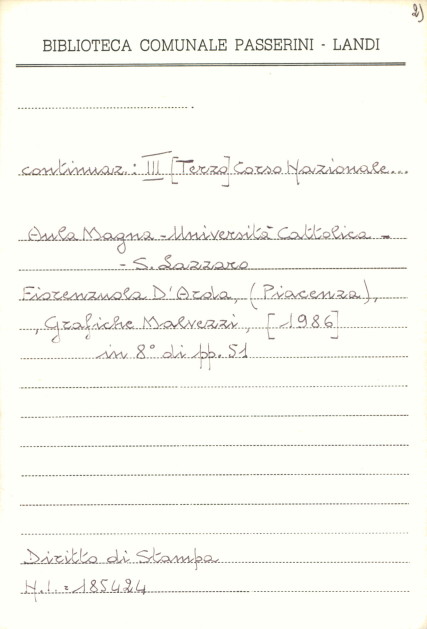 2)
BIBLIOTECA COMUNALE PASSERINI - LANDI
continuaz.: III [Terzo] Corso Nazionale...
Aula Magna - Università Cattolica -
- S. Lazzaro
Fiorenzuola D'Arda, (Piacenza),
, Grafiche Malvezzi, [1986]
in 8° di pp. 51
Diritto di Stampa
N.I. = 185424